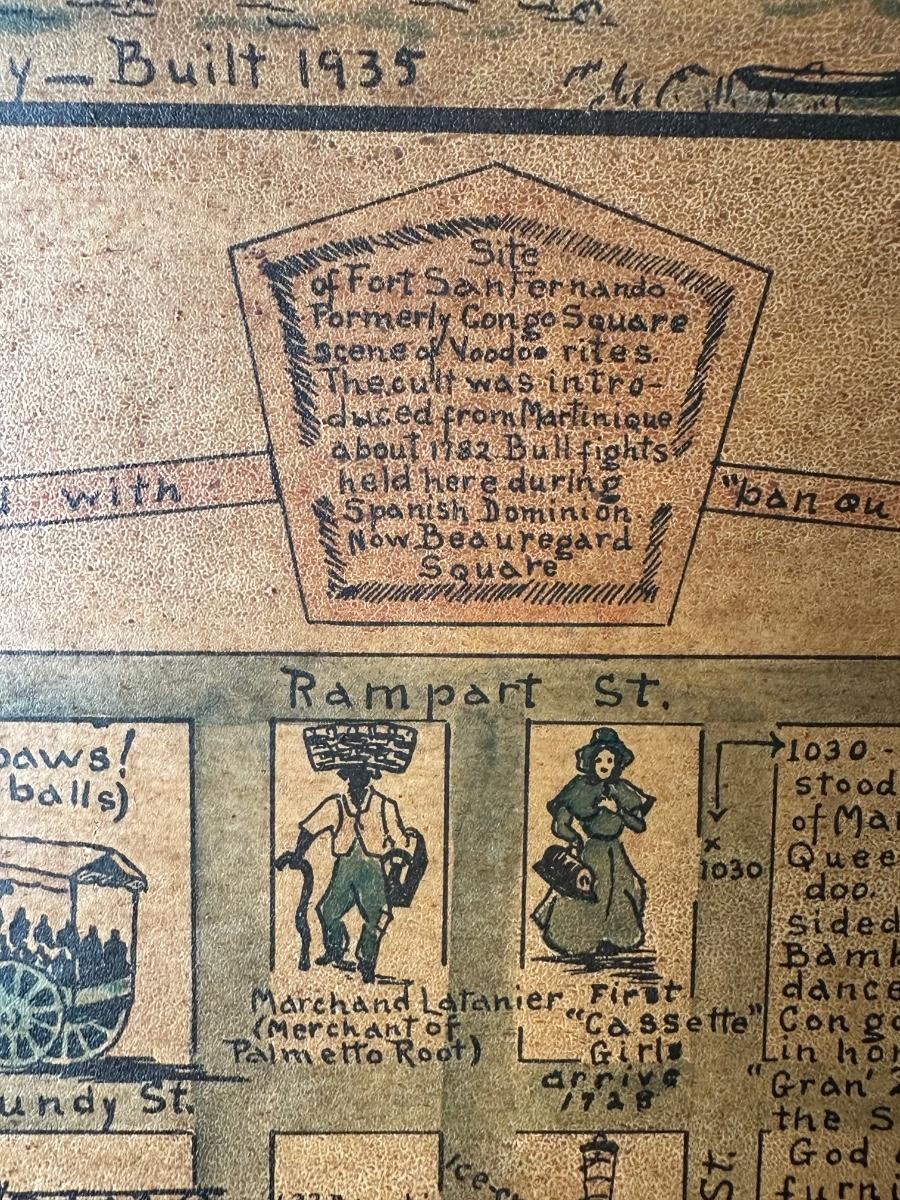 y — Built 1935
Site
of Fort San Fernando
Formerly Congo Square
scene of Voodoo rites.
The cult was intro-
duced from Martinique
about 1782 Bull fights
held here during
Spanish Dominion.
Now Beauregard
Square
with
"ban qu
Rampart St.
paws!
balls)
Marchand Latanier
(Merchant of
Palmetto Root)
First
"Cassette"
Girls
arrive
1728
x
1030
1030 -
stood
of Mar
Quee
doo.
sided
Bamb
dance
Congo
in hon
"Gran' Z
the S
God
furni
undy St.
St.